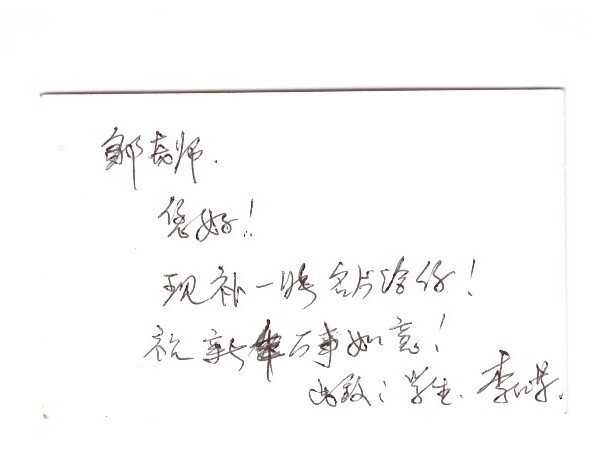 老师.
您好!
现补一张名片给你!
祝新年万事如意!
学生. 李